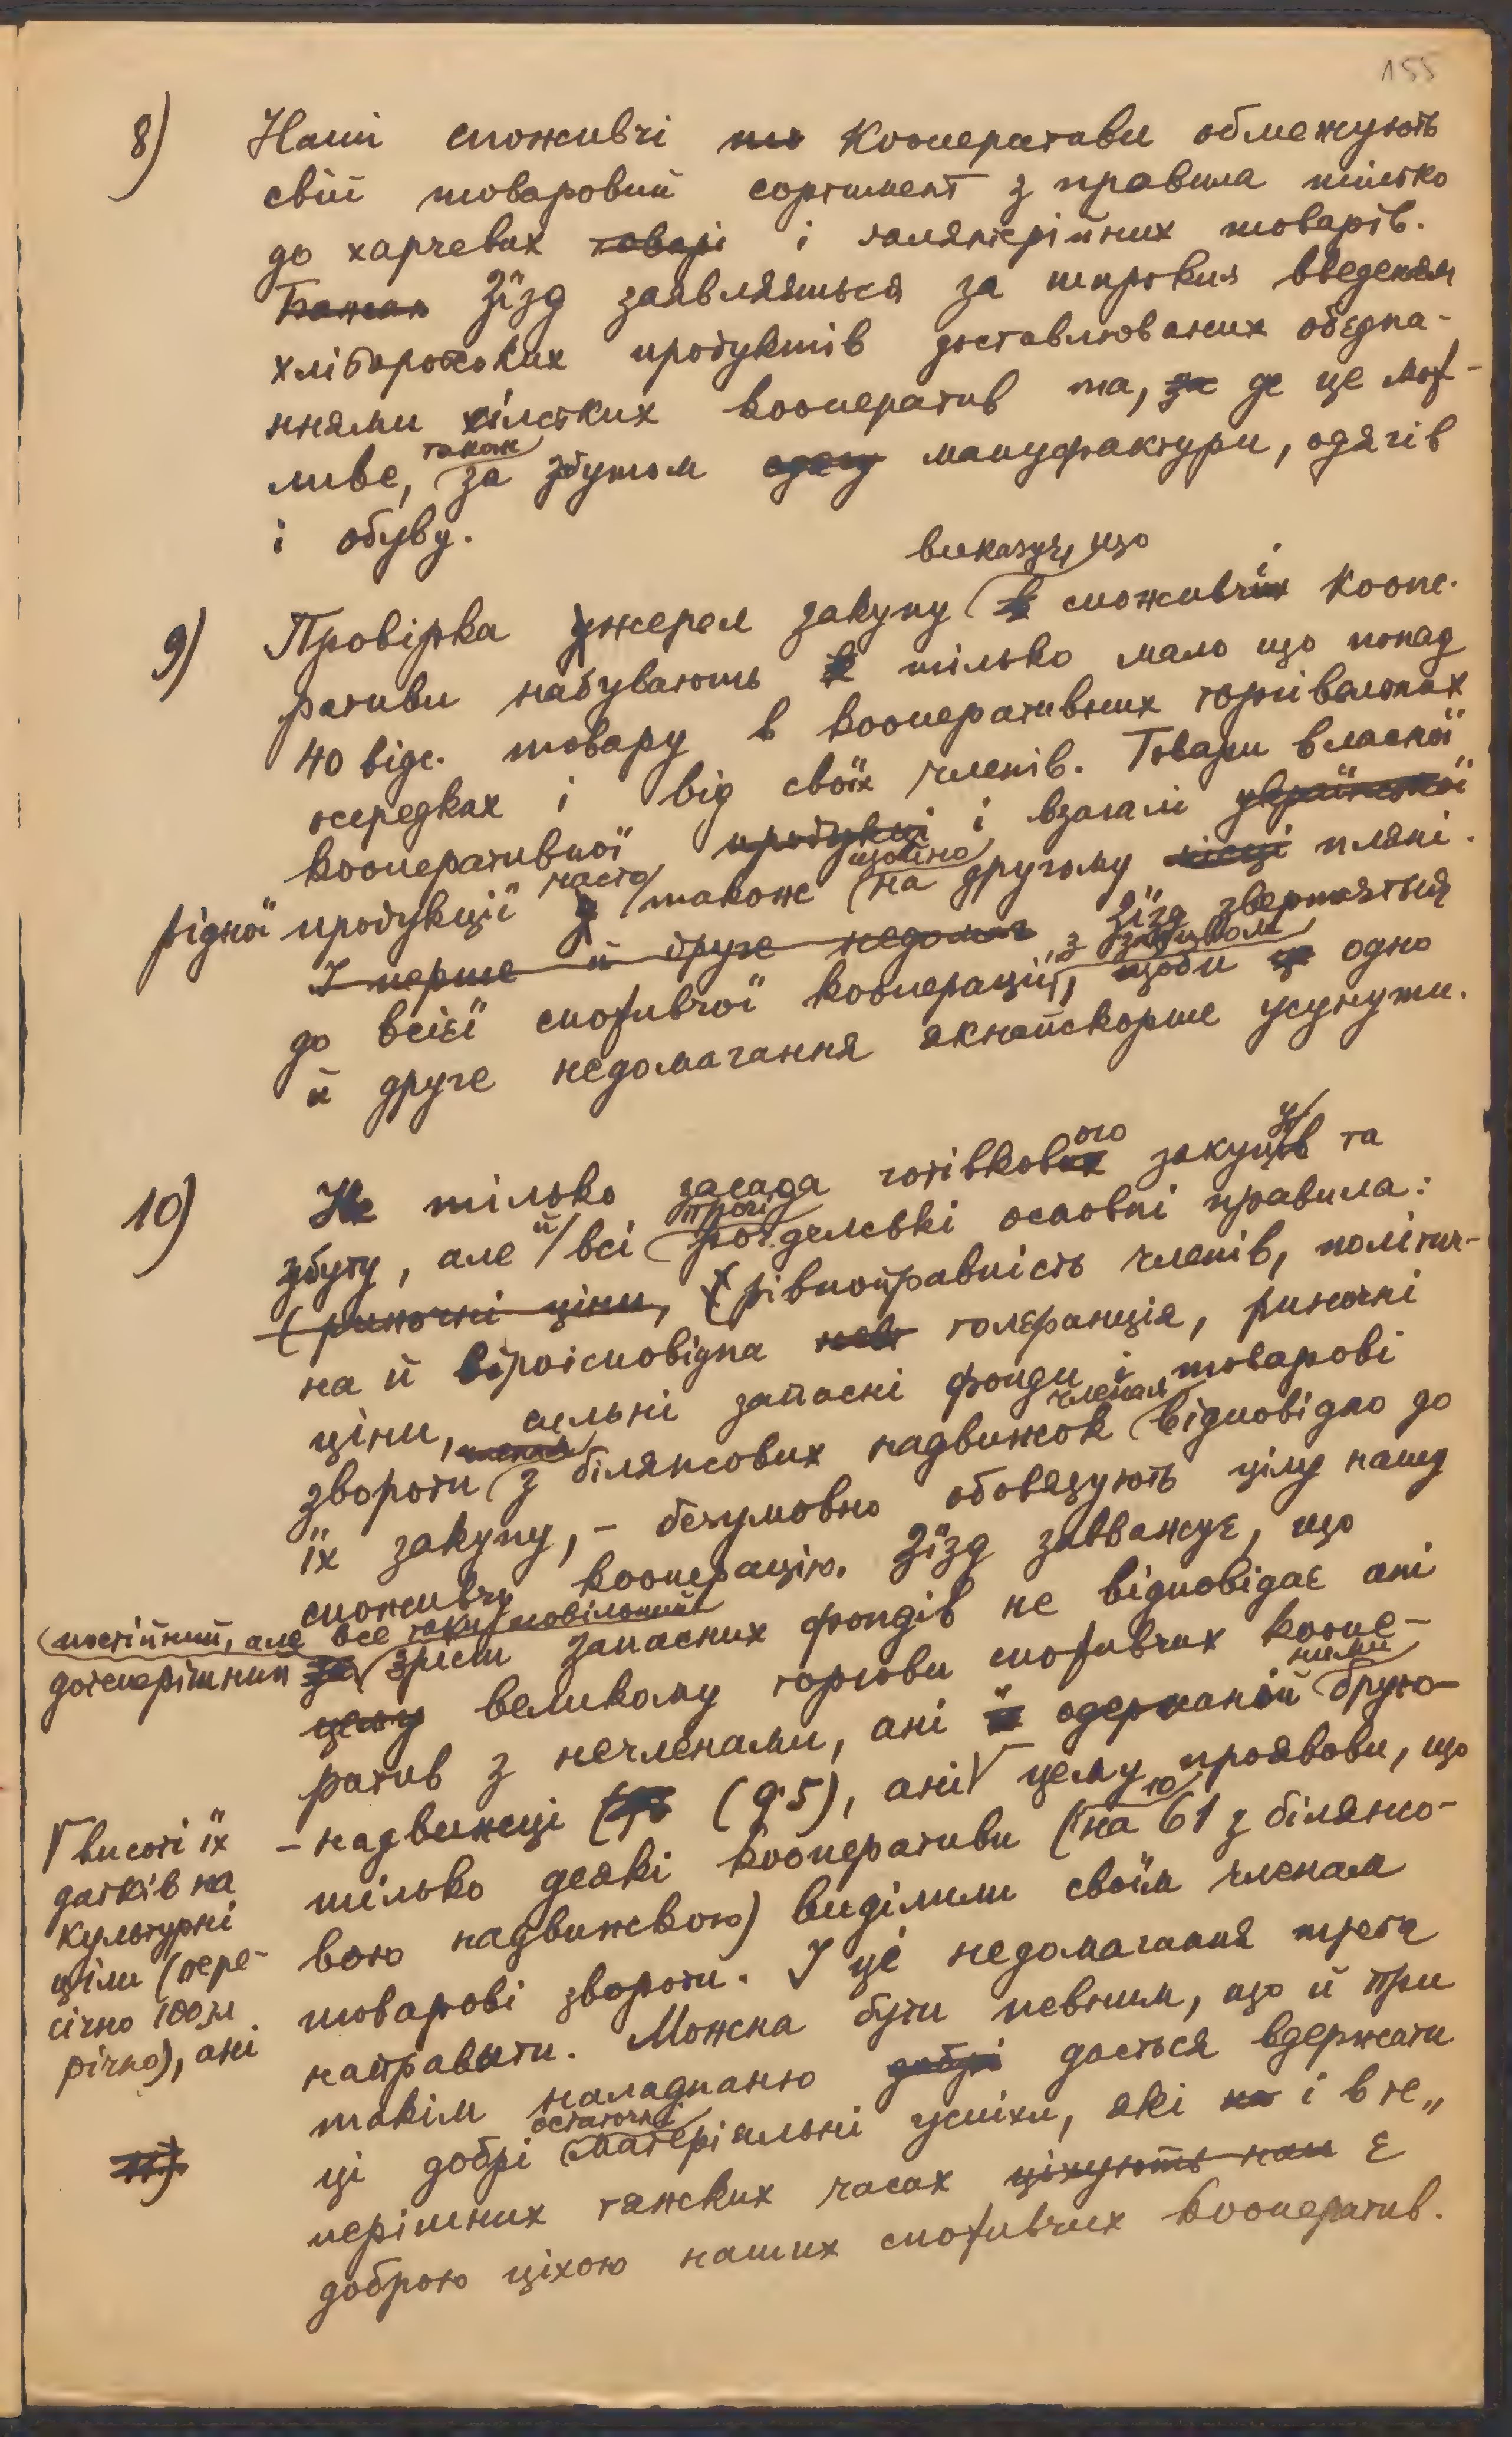 155
8) Наші споживчі кооперативи обмежують
свій товаровий сортимент з правила тілько
до харчевих і галянтерійних товарів.
Зїзд заявляється за широким введенням
хліборобських продуктів доставлюваних обєдна-
ннями сільських кооператив та, де це мож-
ливе, також за збутом мануфактури, одягів
і обуву.
9) Провірка джерел закупу виказує, що споживчі коопе-
ративи набувають тілько мало що понад
40 відс. товару в кооперативних торгівельних
осередках і від своїх членів. Товари власної
кооперативної і взагалі
рідної продукції часто також щойно на другому пляні.
Зїзд звертається
до всієї споживчої кооперації, з закликом одно
й друге недомагання якнайскорше усунути.
10) Не тілько засада готівкового закупу та
збуту, але й всі прочі рочдельські основні правила:
(рівноправність членів, політич-
на й віроісповідна толєранція, риночні
ціни, сильні запасні фонди і товарові
звороти з білянсових надвижок членам відповідно до
їх закупу, – безумовно обовязують цілу нашу
споживчу кооперацію. Зїзд завважує, що
дотеперішний постійний, але все таки повільний
зріст запасних фондів не відповідає ані
великому торгови споживчих коопе-
ратив з нечленами, ані одержаній ними бруто-
– надвижці (9·5), ані цему проявови, що
Г висоті їх
датків на
культурні
ціли (пере-
січно 100 зл
річно), ані
тілько деякі кооперативи (на 61 з білянсо-
вою надвижкою) виділили своїм членам
товарові звороти. І це недомагання треба
направити. Можна бути певним, що й при
такім наладнанню дасться вдержати
ці добрі остаточні матеріяльні успіхи, які і в те„
перішних тяжских часах є
доброю ціхою наших споживчих кооператив.